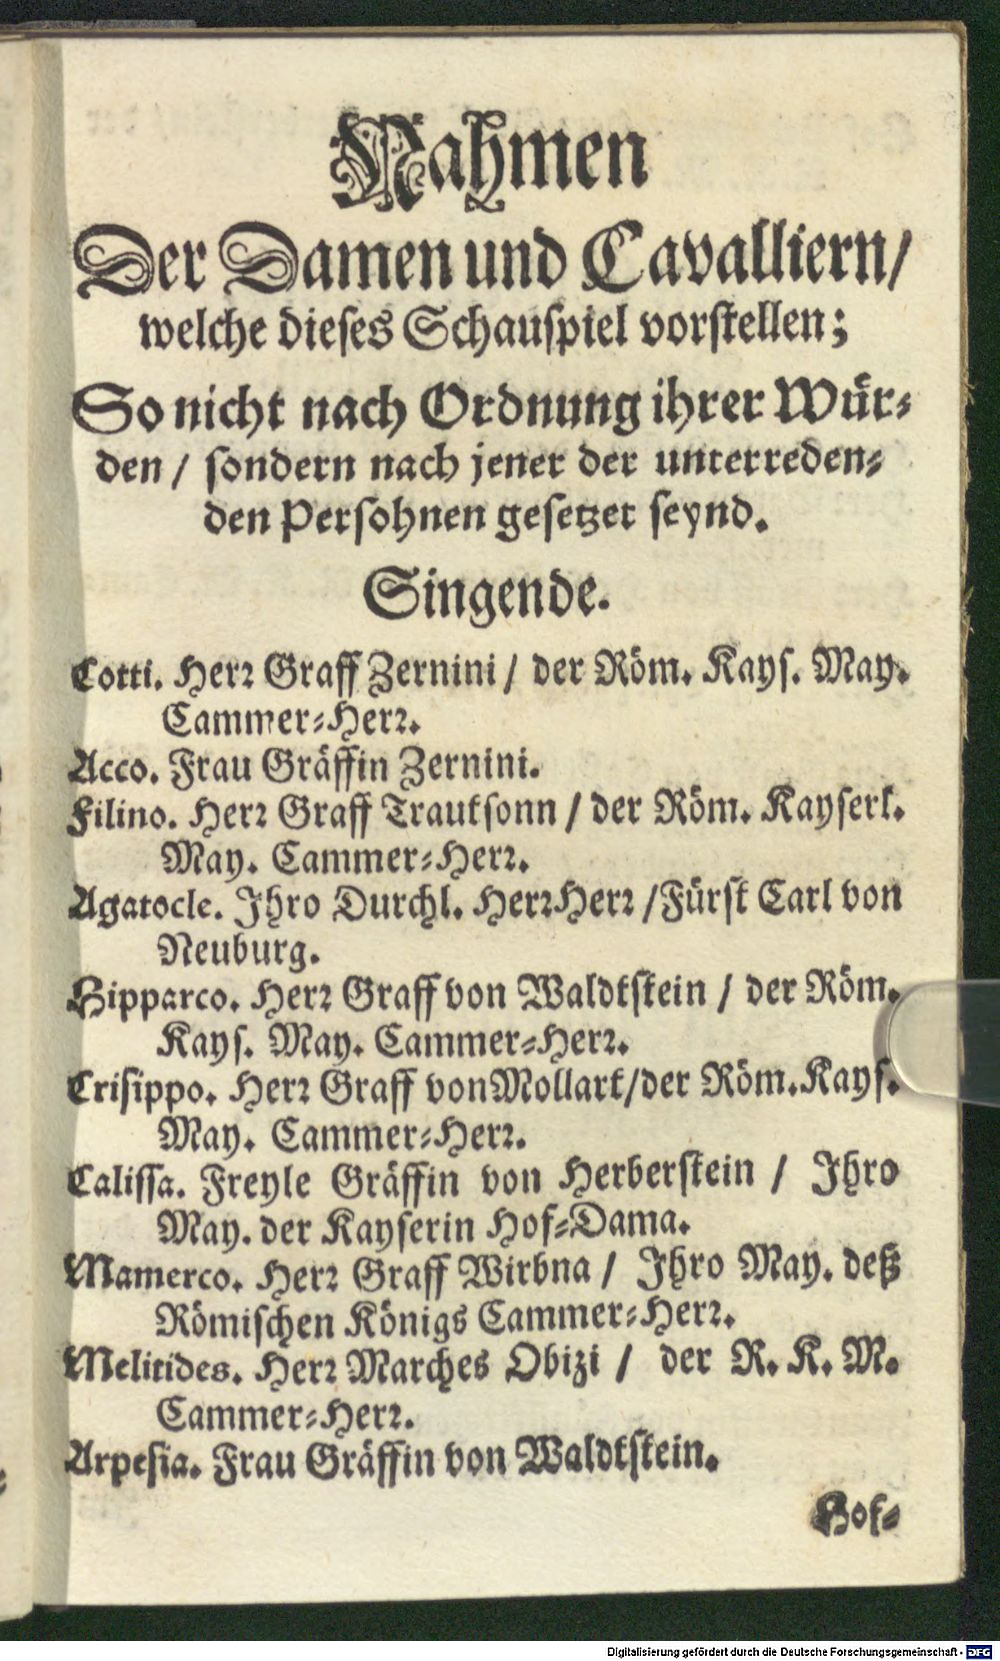 Nahmen
Der Damen und Cavalliern/
welche dieses Schauspiel vorstellen;
So nicht nach Ordnung ihrer Wür-
den / sondern nach jener der unterreden-
den Persohnen gesetzet seynd.
Singende.
Cotti. Herr Graff Zernini / der Röm. Kays. May.
Cammer-Herr.
Acco. Frau Gräffin Zernini.
Filino. Herr Graff Trautsonn / der Röm. Kayserl.
May. Cammer-Herr.
Agatocle. Ihro Durchl. Herr Herr / Fürst Carl von
Neuburg.
Hipparco. Herr Graff von Waldtstein / der Röm.
Kays. May. Cammer-Herr.
Crisippo. Herr Graff von Mollart/der Röm. Kays.
May. Cammer-Herr.
Calissa. Freyle Gräffin von Herberstein / Ihro
May. der Kayserin Hof-Dama.
Mamerco. Herr Graff Wirbna / Ihro May. deß
Römischen Königs Cammer-Herr.
Melitides. Herr Marches Obizi / der R. K. M.
Cammer-Herr.
Arpesia. Frau Gräffin von Waldtstein.
Hof-
Digitalisierung gefördert durch die Deutsche Forschungsgemeinschaft - DFG